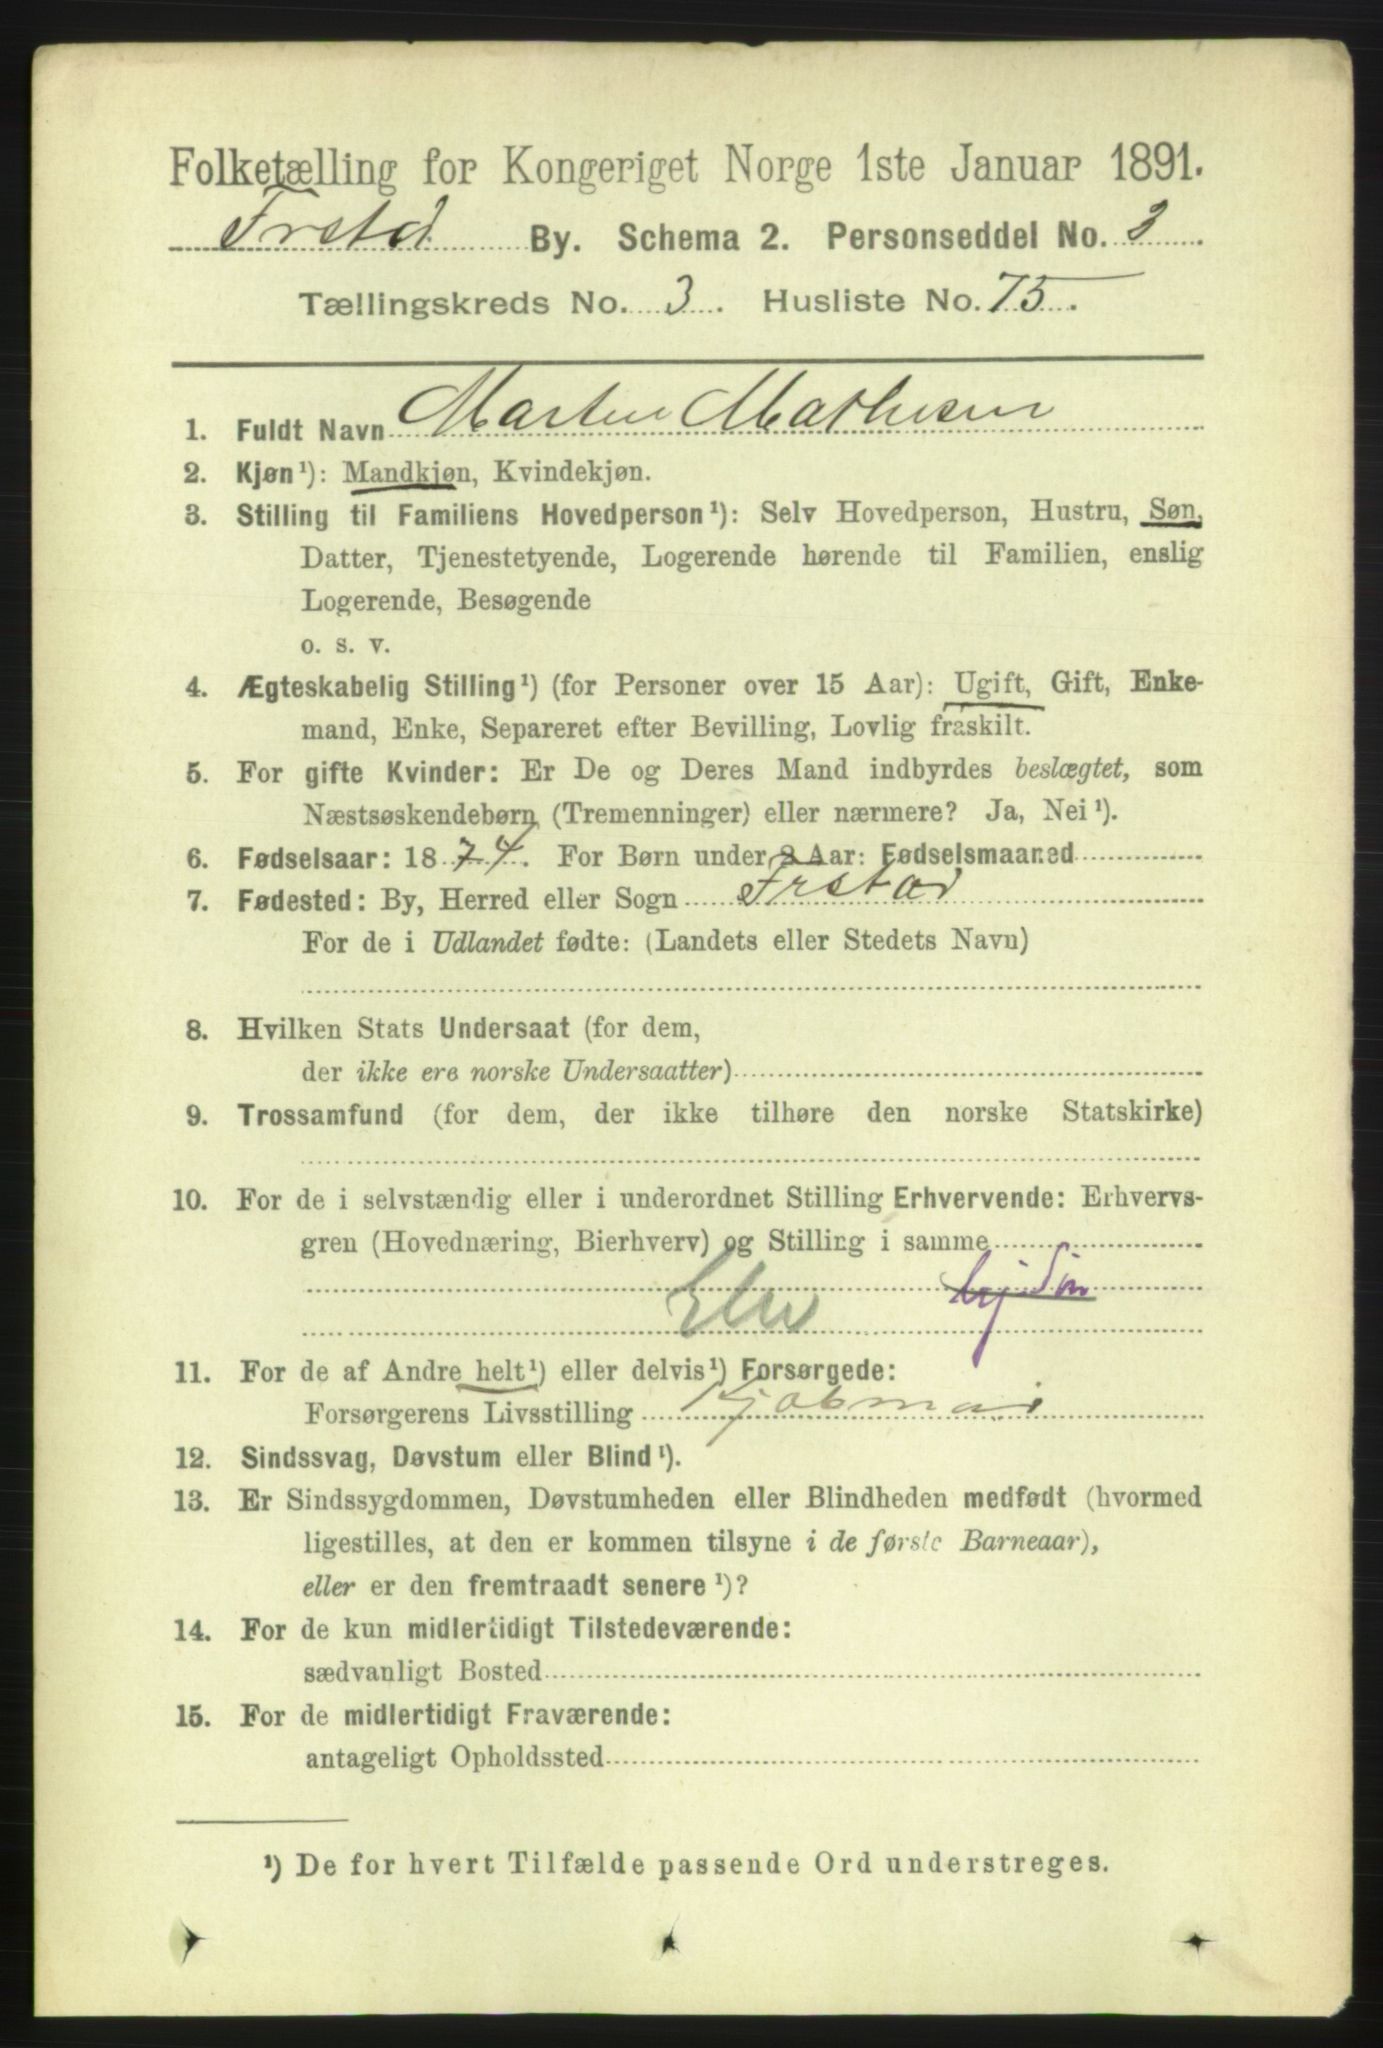 Folketælling for Kongeriget Norge 1ste Januar 1891.
Frstad By. Schema 2. Personseddel No. 3
Tællingskreds No. 3. Husliste No. 75.
1. Fuldt Navn Martin Mathesen
2. Kjøn¹): Mandkjøn, Kvindekjøn.
3. Stilling til Familiens Hovedperson¹): Selv Hovedperson, Hustru, Søn,
Datter, Tjenestetyende, Logerende hørende til Familien, enslig
Logerende, Besøgende
o. s. v.
4. Ægteskabelig Stilling¹) (for Personer over 15 Aar): Ugift, Gift, Enke-
mand, Enke, Separeret efter Bevilling, Lovlig fraskilt.
5. For gifte Kvinder: Er De og Deres Mand indbyrdes beslægtet, som
Næstsøskendebørn (Tremenninger) eller nærmere? Ja, Nei¹).
6. Fødselsaar: 1874. For Børn under 2 Aar: Fødselsmaaned
7. Fødested: By, Herred eller Sogn Frstad
For de i Udlandet fødte: (Landets eller Stedets Navn)
8. Hvilken Stats Undersaat (for dem,
der ikke ere norske Undersaatter)
9. Trossamfund (for dem, der ikke tilhøre den norske Statskirke)
10. For de i selvstændig eller i underordnet Stilling Erhvervende: Erhvervs-
gren (Hovednæring, Bierhverv) og Stilling i samme
Elev
11. For de af Andre helt¹) eller delvis¹) Forsørgede:
Forsørgerens Livsstilling Kjøbman
12. Sindssvag, Døvstum eller Blind¹).
13. Er Sindssygdommen, Døvstumheden eller Blindheden medfødt (hvormed
ligestilles, at den er kommen tilsyne i de første Barneaar),
eller er den fremtraadt senere¹)?
14. For de kun midlertidigt Tilstedeværende:
sædvanligt Bosted
15. For de midlertidigt Fraværende:
antageligt Opholdssted
¹) De for hvert Tilfælde passende Ord understreges.